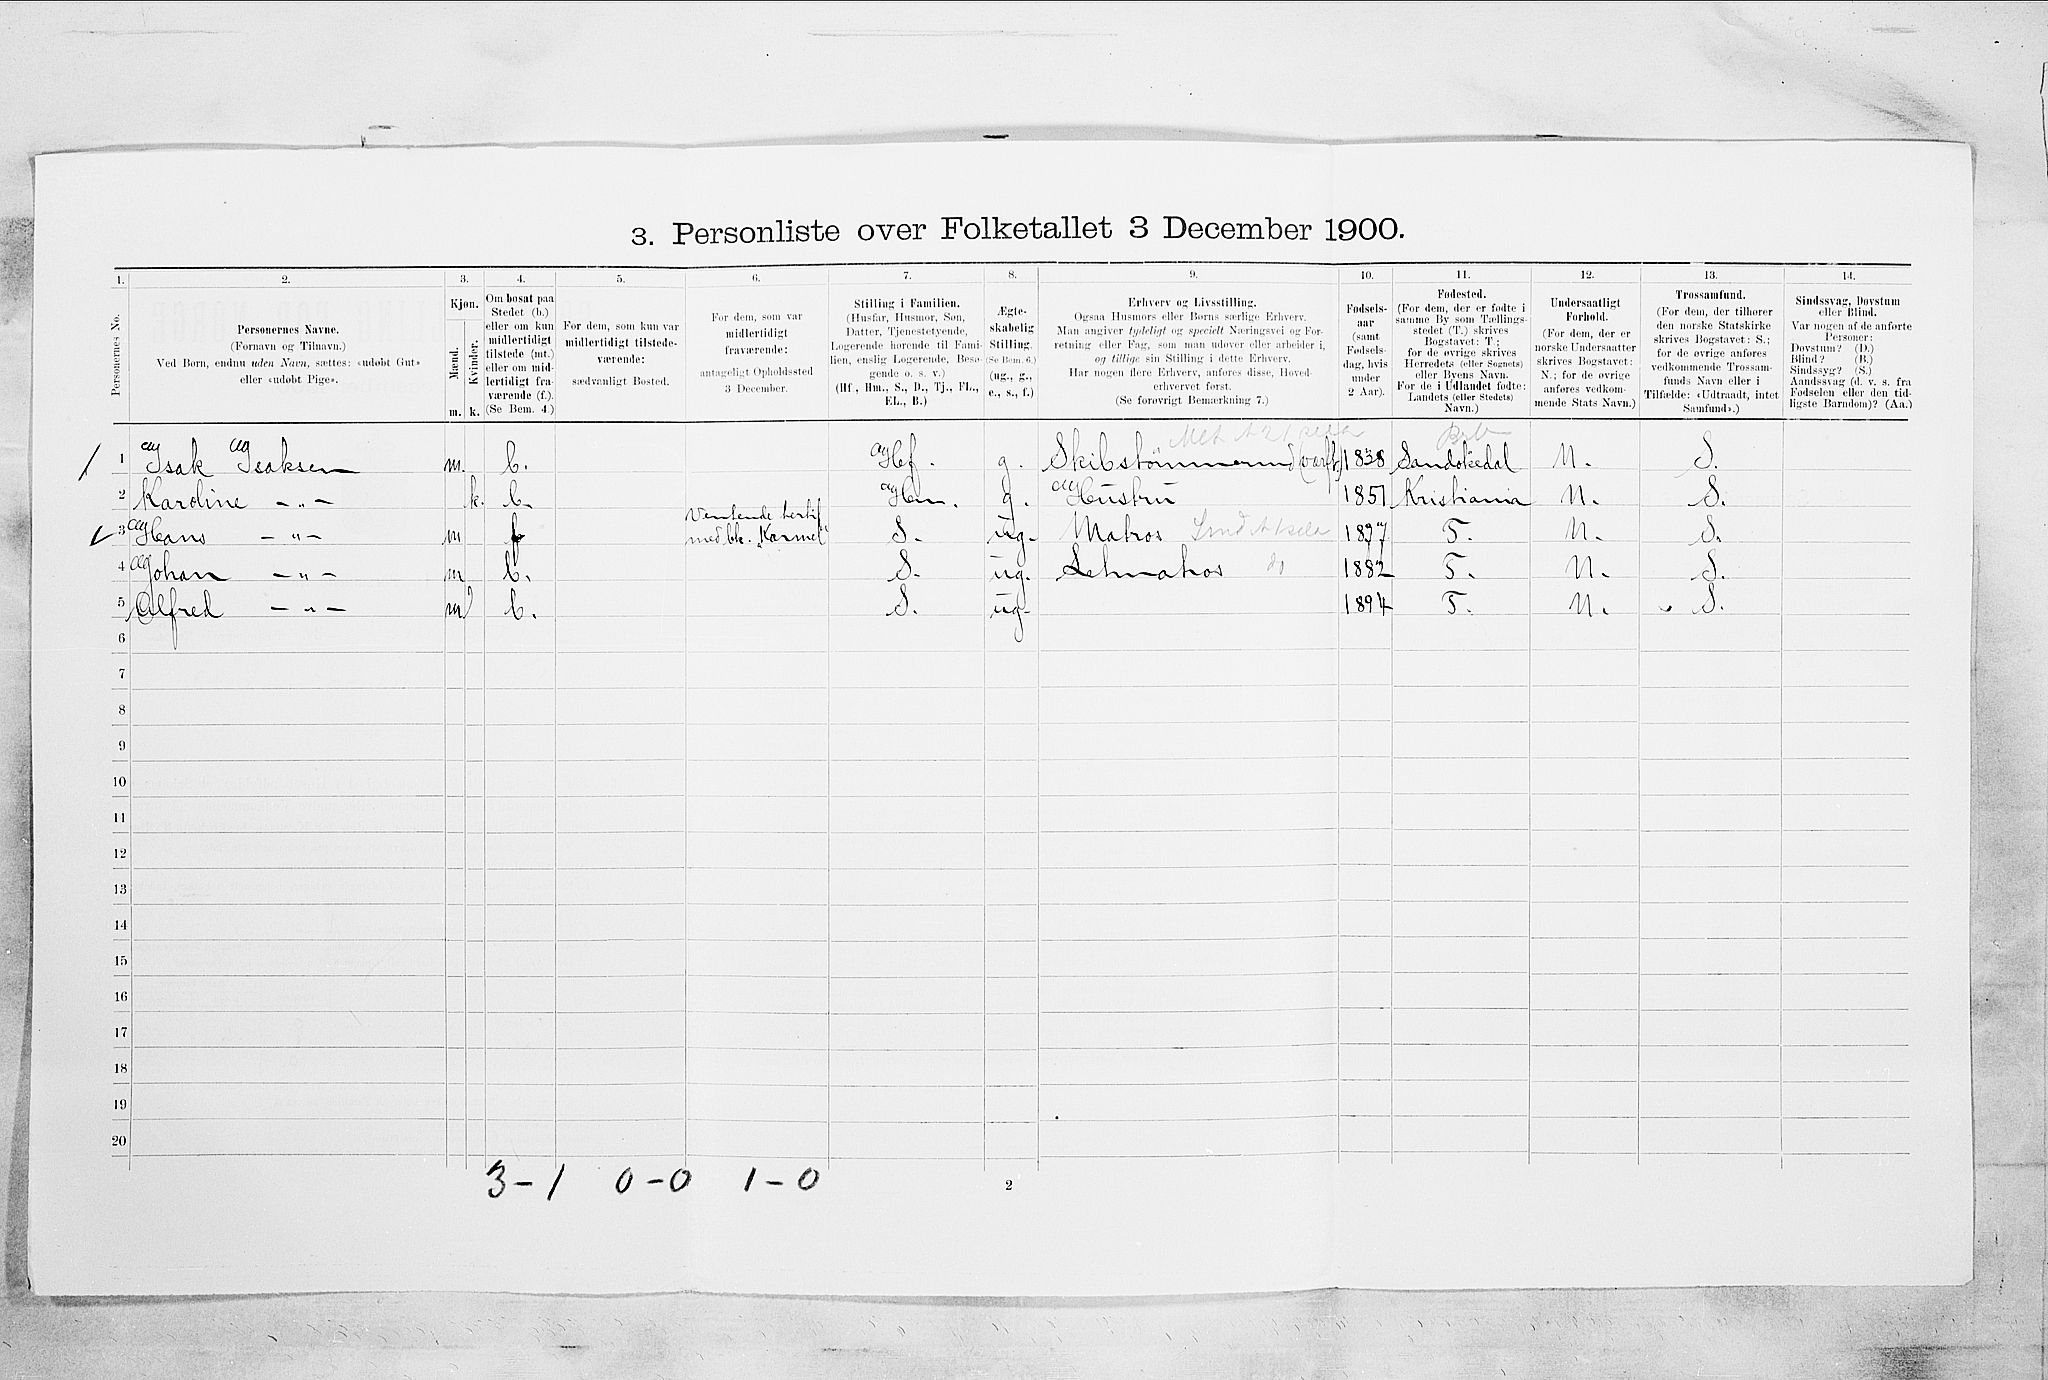 3. Personliste over Folketallet 3 December 1900.
1. 2. 3. 4. 5. 6. 7. 8. 9. 10. 11. 12. 13. 14.
Personernes No.
Personernes Navne.
(Fornavn og Tilnavn.)
Ved Børn, endnu uden Navn, sættes: «udøbt Gut»
eller «udøbt Pige».
Kjøn.
Mænd.
Kvinder.
m. k.
Om bosat paa
Stedet (b.)
eller om kun
midlertidigt
tilstede (mt.)
eller om mid-
lertidigt fra-
værende (f.).
(Se Bem. 4.)
For dem, som kun var
midlertidigt tilstede-
værende:
sædvanligt Bosted.
For dem, som var
midlertidigt
fraværende:
antageligt Opholdssted
3 December.
Stilling i Familien.
(Husfar, Husmor, Søn,
Datter, Tjenestetyende,
Logerende hørende til Fami-
lien, enslig Logerende, Besø-
gende o. s. v.)
(Hf., Hm., S., D., Tj., FL.,
EL., B.)
Ægte-
skabelig
Stilling.
(Se Bem. 6.)
(ug., g.,
e., s., f.)
Erhverv og Livsstilling.
Ogsaa Husmors eller Børns særlige Erhverv.
Man angiver tydeligt og specielt Næringsvei og For-
retning eller Fag, som man udøver eller arbeider i,
og tillige sin Stilling i dette Erhverv.
Har nogen flere Erhverv, anføres disse, Hoved-
erhvervet først.
(Se forøvrigt Bemærkning 7.)
Fødsels-
aar
(samt
Fødsels-
dag, hvis
under
2 Aar).
Fødested.
(For dem, der er fødte i
samme By som Tællings-
stedet (T.) skrives
Bogstavet: T.;
for de øvrige skrives
Herredets (eller Sognets)
eller Byens Navn.
For de i Udlandet fødte:
Landets (eller Stedets)
Navn.)
Undersaatligt
Forhold.
(For dem, der er
norske Undersaatter
skrives Bogstavet:
N.; for de øvrige
anføres vedkom-
mende Stats Navn.)
Trossamfund.
(For dem, der tilhører
den norske Statskirke
skrives Bogstavet: S.;
for de øvrige anføres
vedkommende Trossam-
funds Navn eller i
Tilfælde: «Udtraadt, intet
Samfund».)
Sindssvag, Døvstum
eller Blind.
Var nogen af de anførte
Personer:
Døvstum? (D.)
Blind? (B.)
Sindssyg? (S.)
Aandssvag (d. v. s. fra
Fødselen eller den tid-
ligste Barndom)? (Aa.)
1 Isak Isaksen m. b. Hf. g. Skibstømmermd (varft) 1838 Sandøkedal N. S.
2 Karoline — „ — k. b. Hm. g. Hustru 1851 Kristiania N. S.
3 Hans — „ — m f Ventende hertil
med bk. „Karmel" S. ug. Matros 1877 T. N. S.
4 Johan — „ — m b. S. ug. Letmatros do 1882 T. N. S.
5 Alfred — „ — m b. S. ug. 1894 T. N. S.
6
7
8
9
10
11
12
13
14
15
16
17
18
19
20
3 – 1 0 – 0 1 – 0
2